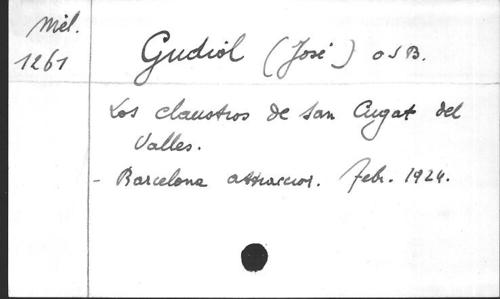 Mél.
1261
Gudiol (José) OSB.
Los claustros de San Cugat del
Valles.
- Barcelona attraccion. Febr. 1924.